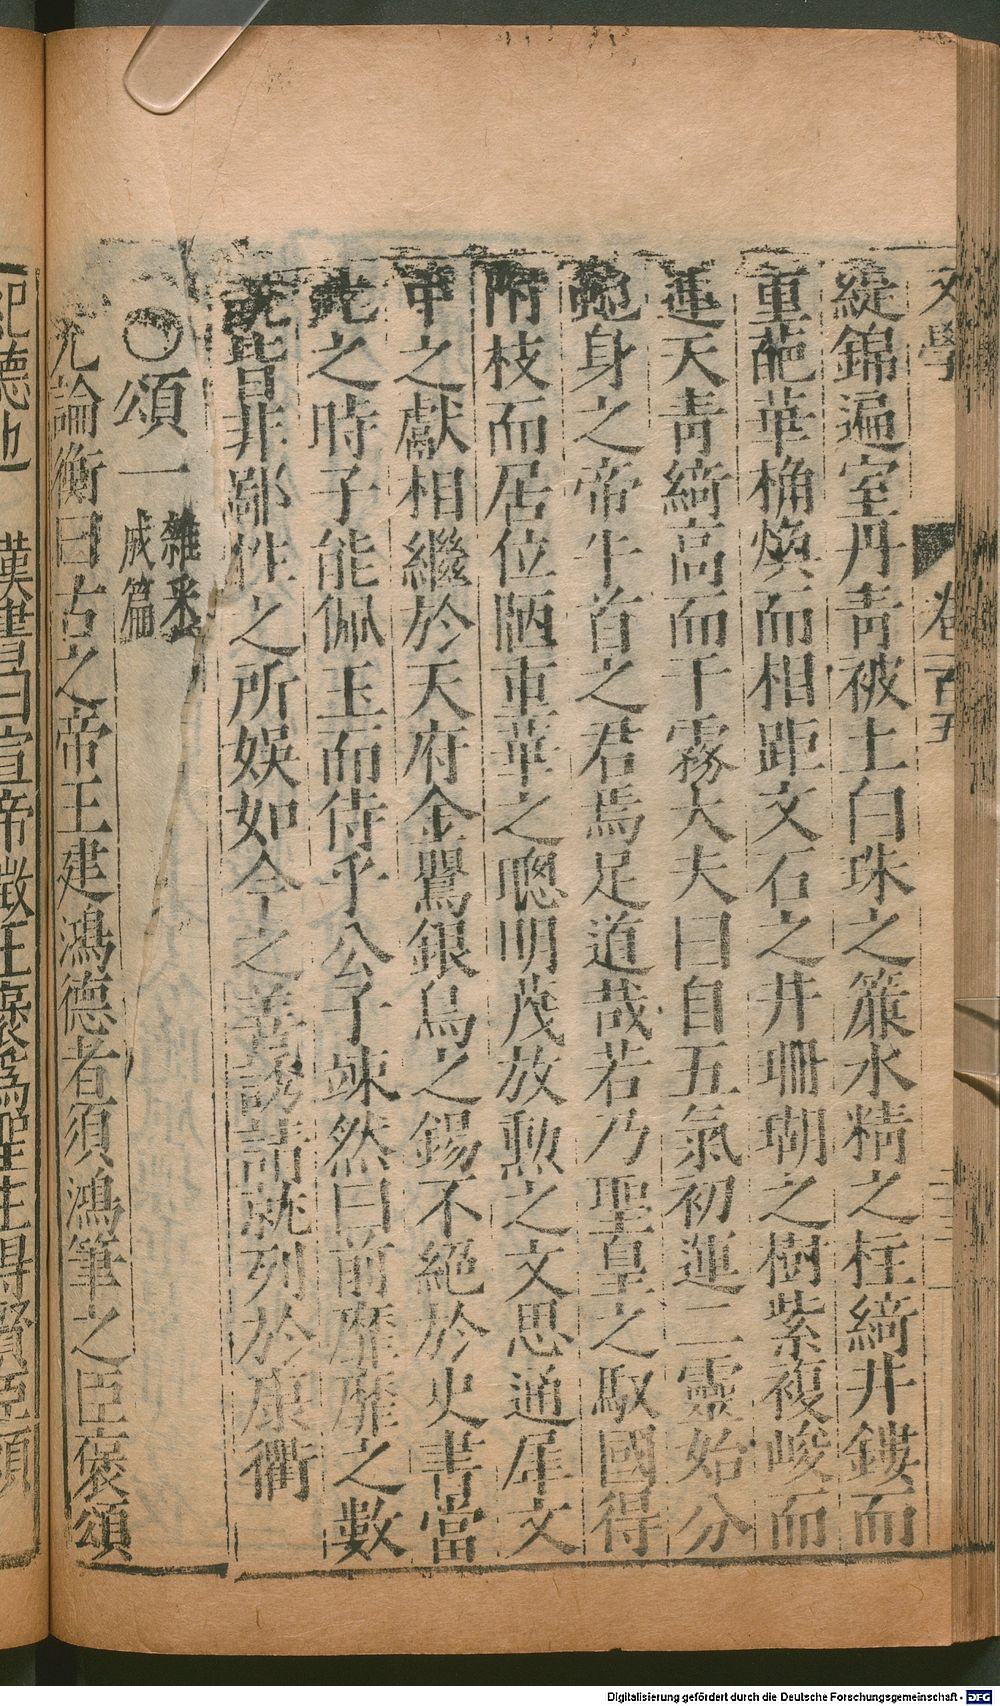 文學
卷百五
緹錦遍室丹青被土白珠之簾水精之柱綺井鏤而
重葩華桷煥而相距文石之井珊瑚之樹紫複峻而
連天青綺高而干霧大夫曰自五氣初運二靈始分
虵身之帝牛首之君焉足道哉若乃聖皇之馭國得
附枝而居位陋重華之聰明茂放勲之文思通犀文
甲之獻相繼於天府金鸎銀烏之錫不絕於史書當
此之時子能佩玉而侍乎公子竦然曰前靡靡之數
說皆非鄙性之所娛如今之善誘請就列於康衢
○頌一
雜釆
成篇
論衡曰古之帝王建鴻德者須鴻筆之臣褒頌
紀德也 漢書曰宣帝徵王襃為聖主得賢臣頌
Digitalisierung gefördert durch die Deutsche Forschungsgemeinschaft - DFG